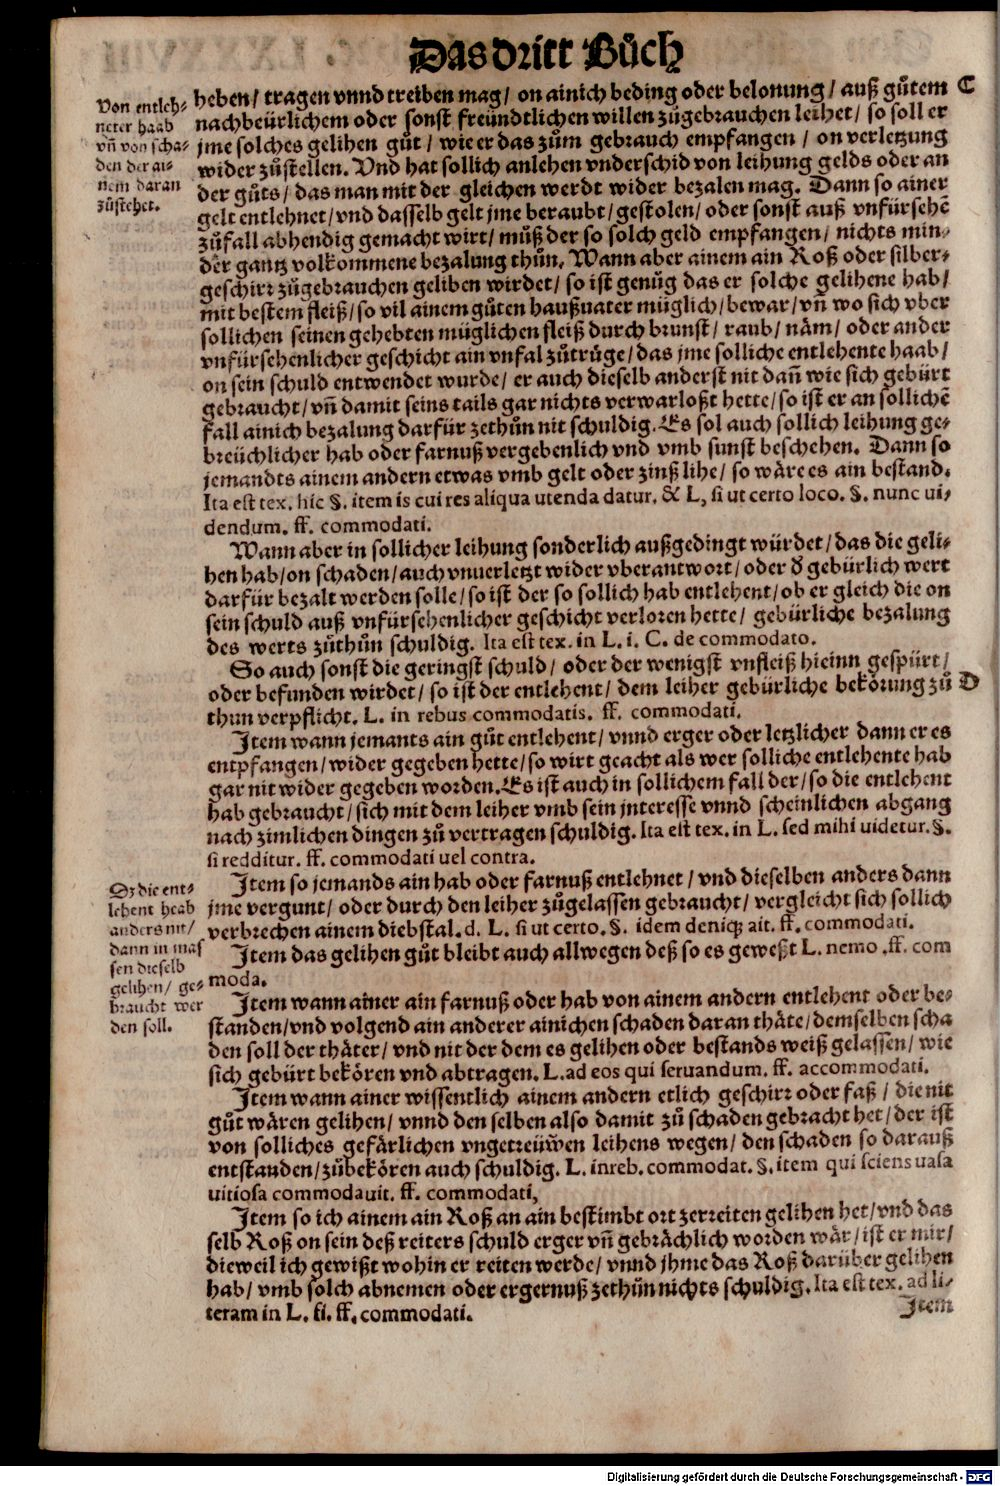 Das dritt Bůch
Von entleh-
neter haab
vñ von scha-
den der ai-
nem daran
zůstehet.
heben/ tragen vnnd treiben mag/ on ainich beding oder belonung/ auß gůtem C
nachbeürlichem oder sonst freündtlichen willen zůgebrauchen leihet/ so soll er
jme solches gelihen gůt/ wie er das zům gebrauch empfangen/ on verletzung
wider zůstellen. Vnd hat sollich anlehen vnderschid von leihung gelds oder an
der gůts/ das man mit der gleichen werdt wider bezalen mag. Dann so ainer
gelt entlehnet/ vnd dasselb gelt jme beraubt/ gestolen/ oder sonst auß vnfürsehẽ
zůfall abhendig gemacht wirt/ můß der so solch geld empfangen/ nichts min-
der gantz volkommene bezalung thůn. Wann aber ainem ain Roß oder silber-
geschirr zůgebrauchen geliben wirdet/ so ist genůg das er solche gelihene hab/
mit bestem fleiß/ so vil ainem gůten haußuater müglich/ bewar/ vñ wo sich vber
sollichen seinen gehebten müglichen fleiß durch brunst/ raub/ näm/ oder ander
vnfürsehenlicher geschicht ain vnfal zůtrüge/ das jme solliche entlehente haab/
on sein schuld entwendet wurde/ er auch dieselb anderst nit dañ wie sich gebürt
gebraucht/ vñ damit seins tails gar nichts verwarloßt hette/ so ist er an sollichẽ
fall ainich bezalung darfür zethůn nit schuldig. Es sol auch sollich leihung ge-
breüchlicher hab oder farnuß vergebenlich vnd vmb sunst beschehen. Dann so
jemandts ainem andern etwas vmb gelt oder zinß lihe/ so wäre es ain bestand.
Ita est tex. hic §. item is cui res aliqua utenda datur. & L, si ut certo loco. §. nunc ui-
dendum. ff. commodati.
Wann aber in sollicher leihung sonderlich außgedingt würdet/ das die geli-
hen hab/ on schaden/ auch vnuerletzt wider vberantwort/ oder đ gebürlich wert
darfür bezalt werden solle/ so ist der so sollich hab entlehent/ ob er gleich die on
sein schuld auß vnfürsehenlicher geschicht verloren hette/ gebürliche bezalung
des werts zůthůn schuldig. Ita est tex. in L. i. C. de commodato.
So auch sonst die geringst schuld/ oder der wenigst vnfleiß hieinn gespürt/
oder befunden wirdet/ so ist der entlehent/ dem leiher gebürliche bekörung zů D
thun verpflicht. L. in rebus commodatis. ff. commodati.
Item wann jemants ain gůt entlehent/ vnnd erger oder letzlicher dann er es
entpfangen/ wider gegeben hette/ so wirt geacht als wer solliche entlehente hab
gar nit wider gegeben worden. Es ist auch in sollichem fall der/ so die entlehent
hab gebraucht/ sich mit dem leiher vmb sein jnteresse vnnd scheinlichen abgang
nach zimlichen dingen zů vertragen schuldig. Ita est tex. in L. sed mihi uidetur. §.
si redditur. ff. commodati uel contra.
Dz die ent-
lehent heab
anders nit/
dann in mas
sen dieselb
gelihen/ ge-
braucht wer
den soll.
Item so jemands ain hab oder farnuß entlehnet/ vnd dieselben anders dann
jme vergunt/ oder durch den leiher zůgelassen gebraucht/ vergleicht sich sollich
verbrechen ainem diebstal. d. L. si ut certo. §. idem deniqꝫ ait. ff. commodati.
Item das gelihen gůt bleibt auch allwegen deß so es geweßt L. nemo .ff. com
moda.
Item wann ainer ain farnuß oder hab von ainem andern entlehent oder be-
standen/ vnd volgend ain anderer ainichen schaden daran thäte/ demselben scha
den soll der thäter/ vnd nit der dem es gelihen oder bestands weiß gelassen/ wie
sich gebürt bekören vnd abtragen. L. ad eos qui seruandum. ff. accommodati.
Item wann ainer wissentlich ainem andern etlich geschirr oder faß/ die nit
gůt wären gelihen/ vnnd den selben also damit zů schaden gebracht het/ der ist
von solliches gefärlichen vngetreüwen leihens wegen/ den schaden so darauß
entstanden/ zůbekören auch schuldig. L. in reb. commodat. §. item qui sciens uasa
uitiosa commodauit. ff. commodati,
Item so ich ainem ain Roß an ain bestimbt ort zerreiten gelihen het/ vnd das
selb Roß on sein deß reiters schuld erger vñ gebrächlich worden wär/ ist er mir/
dieweil ich gewißt wohin er reiten werde/ vnnd jhme das Roß darüber gelihen
hab/ vmb solch abnemen oder ergernuß zethůn nichts schuldig. Ita est tex. ad li-
teram in L. si. ff. commodati.
Item
Digitalisierung gefördert durch die Deutsche Forschungsgemeinschaft - DFG